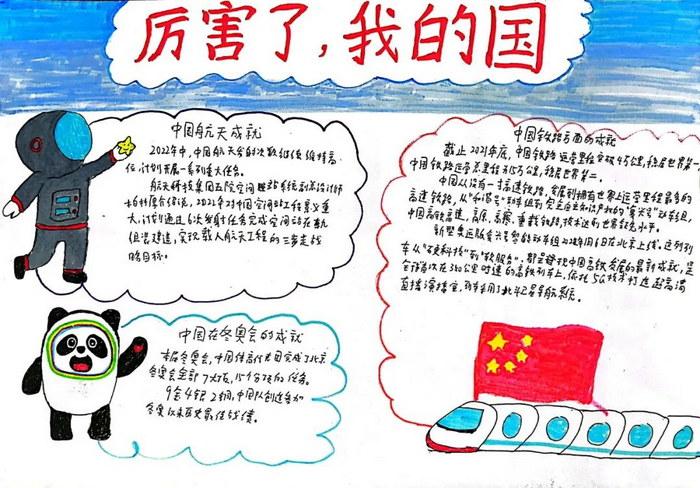 厉害了，我的国
中国航天成就
2022年中，中国航天发射次数继续维持高
位，计划开展一系列重大任务。
航天科技集团五院空间站系统副总设计师
介绍说，2022年对中国空间站工程意义重
大，计划通过6次发射任务完成空间站在轨
组装建造，实现载人航天工程的三步走战
略目标。
中国在冬奥会的成就
本届冬奥会，中国体育代表团完成了北京
冬奥会全部7大项，15个分项的任务。
9金4银2铜，中国队创造参加
冬奥以来历史最佳战绩。
中国铁路方面的成就
截止2021年底，中国铁路运营里程突破15万公里，稳居世界第一
中国铁路运营总里程为15万公里，稳居世界第二。
中国从没有一寸高速铁路，发展到拥有世界上运营里程最多的
高速铁路，从"和谐号"动车组到完全自主知识产权的"复兴号"动车组，
中国高铁高速、高原、高寒、重载铁路，技术达到世界领先水平。
新型奥运版复兴号智能动车组2022年1月6日在北京上线。这列列
车从"硬科技"到"软服务"，都是中国高铁发展的最新成就，是
全球首次在350公里时速的高铁列车上，依托5G技术打造超高清
直播演播室，动车采用了北斗卫星导航系统。